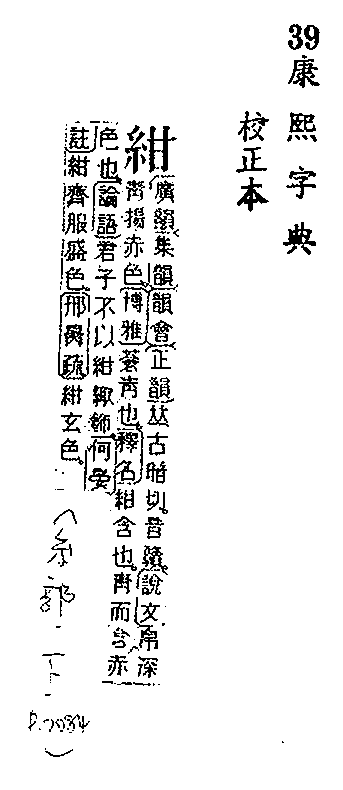 39
康熙字典
校正本
紺
廣韻集韻韻會正韻𠀤古暗切音贛說文帛深
靑揚赤色博雅蒼靑也釋名紺含也靑而含赤
色也論語君子不以紺緅飾何晏
註紺齊服盛色邢昺疏紺玄色
(糸部
P.2034)